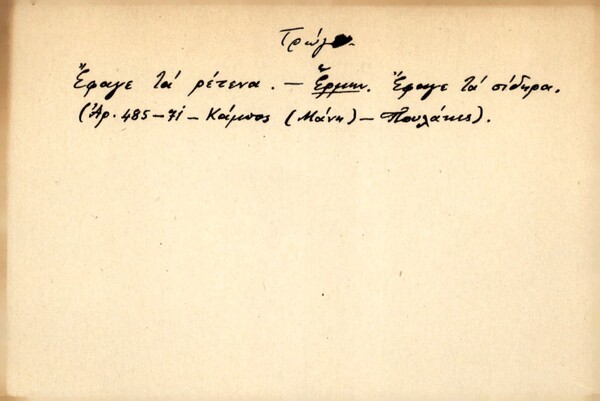 Τρώγω.
Ἔφαγε τά ρέτενα. – Ἑρμην. Ἔφαγε τά σίδηρα.
(Ἀρ. 485–71 – Κάμπος (Μάνη) – Πουλάκης).